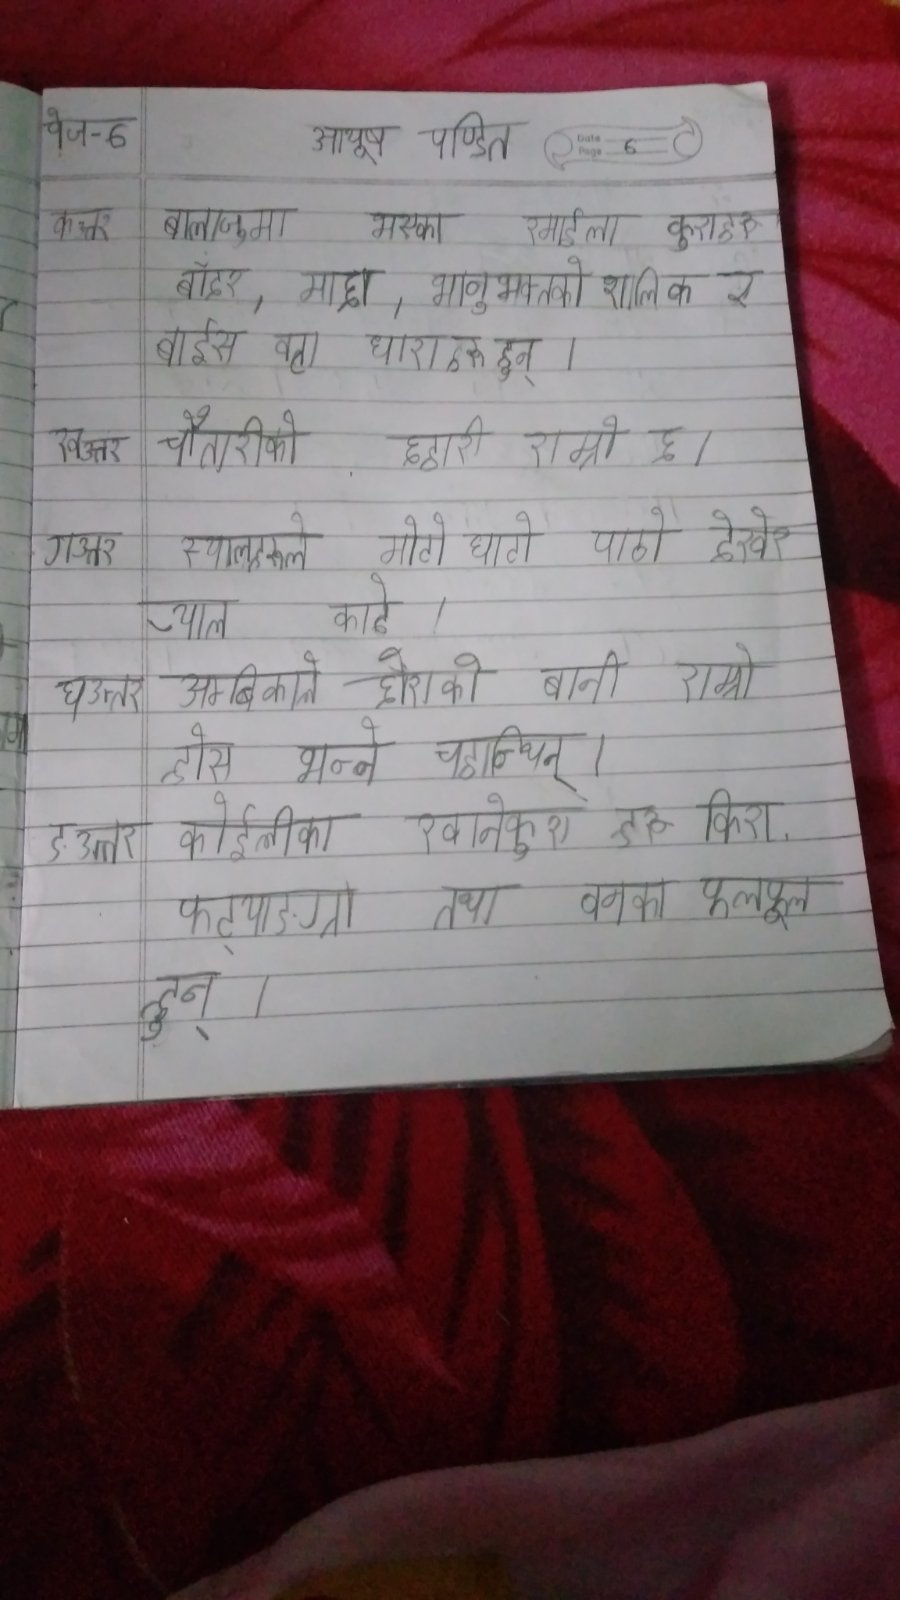 पेज-6 आयूष पण्डित Date Page 6
क उत्तर बालाजुमा भएका रमाईला कुराहरु
बाँदर, माछा, भानुभक्तको शालिक र
बाईस वटा धाराहरु हुन् ।
ख उत्तर चौतारीको छहारी राम्रो छ ।
ग उत्तर स्यालहरुले मोटो घाटो पाठो देखेर
र्‍याल काढे ।
घ उत्तर अम्बिकाले छोराको बानी राम्रो
होस भन्ने चहान्थिन् ।
ङ उत्तर कोईलीका खानेकुरा हरु किरा,
फट्याङग्रा तथा वनका फलफूल
हुन् ।